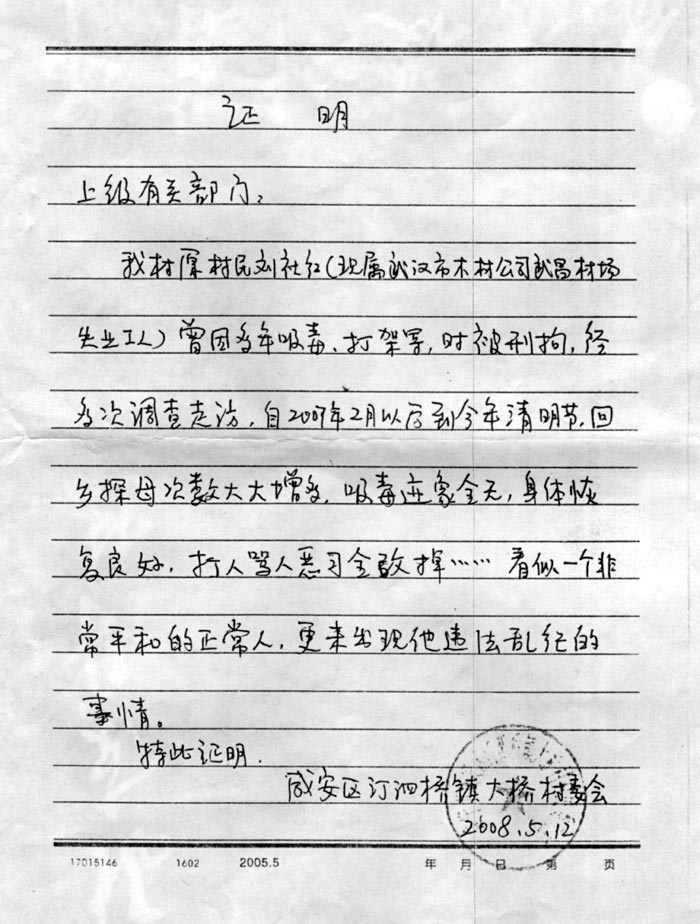 证 明
上级有关部门：
我村原村民刘社红（现属武汉市木材公司武昌材场
失业工人）曾因多年吸毒、打架罪，时被刑拘，经
多次调查走访，自2007年2月以后到今年清明节，回
乡探母次数大大增多，吸毒迹象全无，身体恢
复良好，打人骂人恶习全改掉…… 看似一个非
常平和的正常人，更未出现他违法乱纪的
事情。
特此证明．
咸安区汀泗桥镇大桥村委会
2008.5.12
17015146 1602 2005.5 年 月 日 第 页